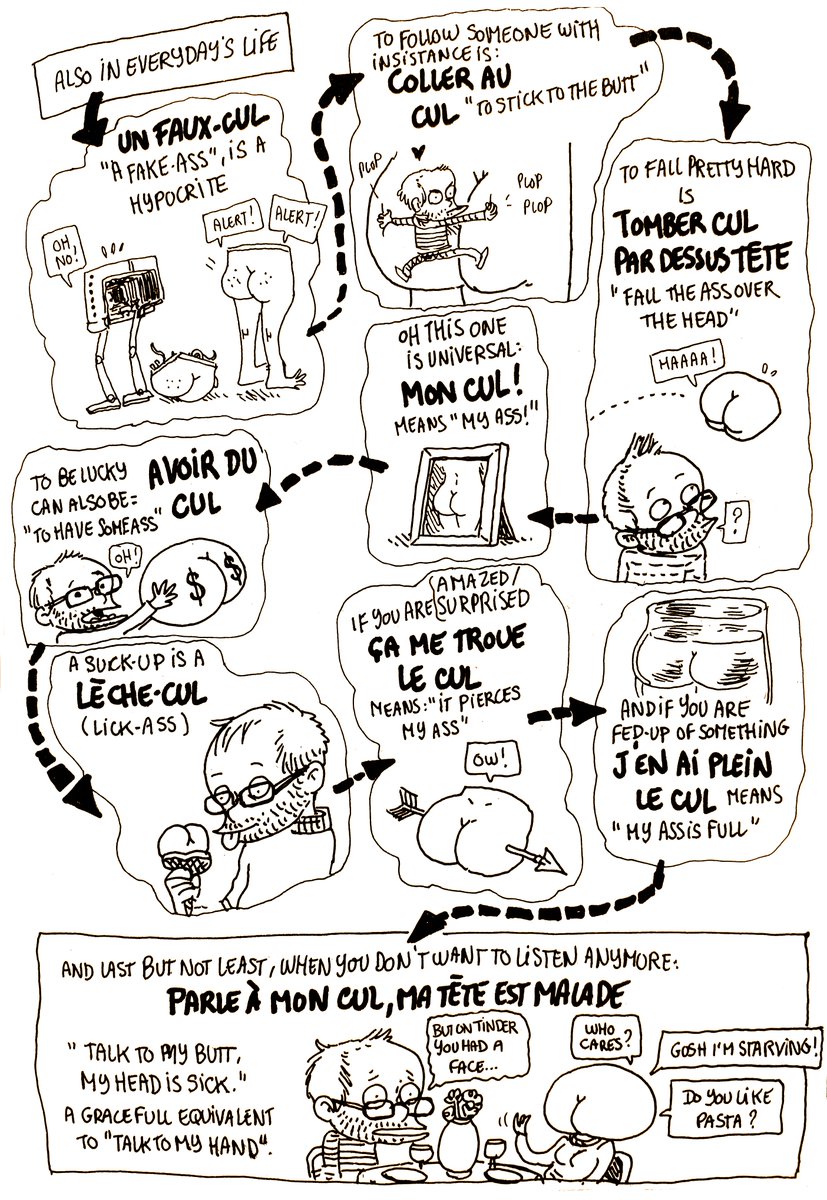 ALSO IN EVERYDAY'S LIFE
UN FAUX-CUL
"A FAKE-ASS", IS A
HYPOCRITE
OH,
NO!
ALERT!
ALERT!
TO FOLLOW SOMEONE WITH
INSISTANCE IS:
COLLER AU
CUL "TO STICK TO THE BUTT"
PLOP
PLOP
PLOP
TO FALL PRETTY HARD
IS
TOMBER CUL
PAR DESSUS TÊTE
"FALL THE ASS OVER
THE HEAD"
HAAAA!
?
OH THIS ONE
IS UNIVERSAL:
MON CUL!
MEANS "MY ASS!"
TO BE LUCKY
CAN ALSO BE:
"TO HAVE SOME ASS"
AVOIR DU
CUL
OH!
$
$
A SUCK-UP IS A
LÈCHE-CUL
(LICK-ASS)
IF YOU ARE AMAZED/
SURPRISED
ÇA ME TROUE
LE CUL
MEANS: "IT PIERCES
MY ASS"
OW!
AND IF YOU ARE
FED-UP OF SOMETHING
J'EN AI PLEIN
LE CUL MEANS
"MY ASS IS FULL"
AND LAST BUT NOT LEAST, WHEN YOU DON'T WANT TO LISTEN ANYMORE:
PARLE À MON CUL, MA TÊTE EST MALADE
"TALK TO MY BUTT,
MY HEAD IS SICK."
A GRACEFULL EQUIVALENT
TO "TALK TO MY HAND".
BUT ON TINDER
YOU HAD A
FACE...
WHO
CARES?
GOSH I'M STARVING!
DO YOU LIKE
PASTA?